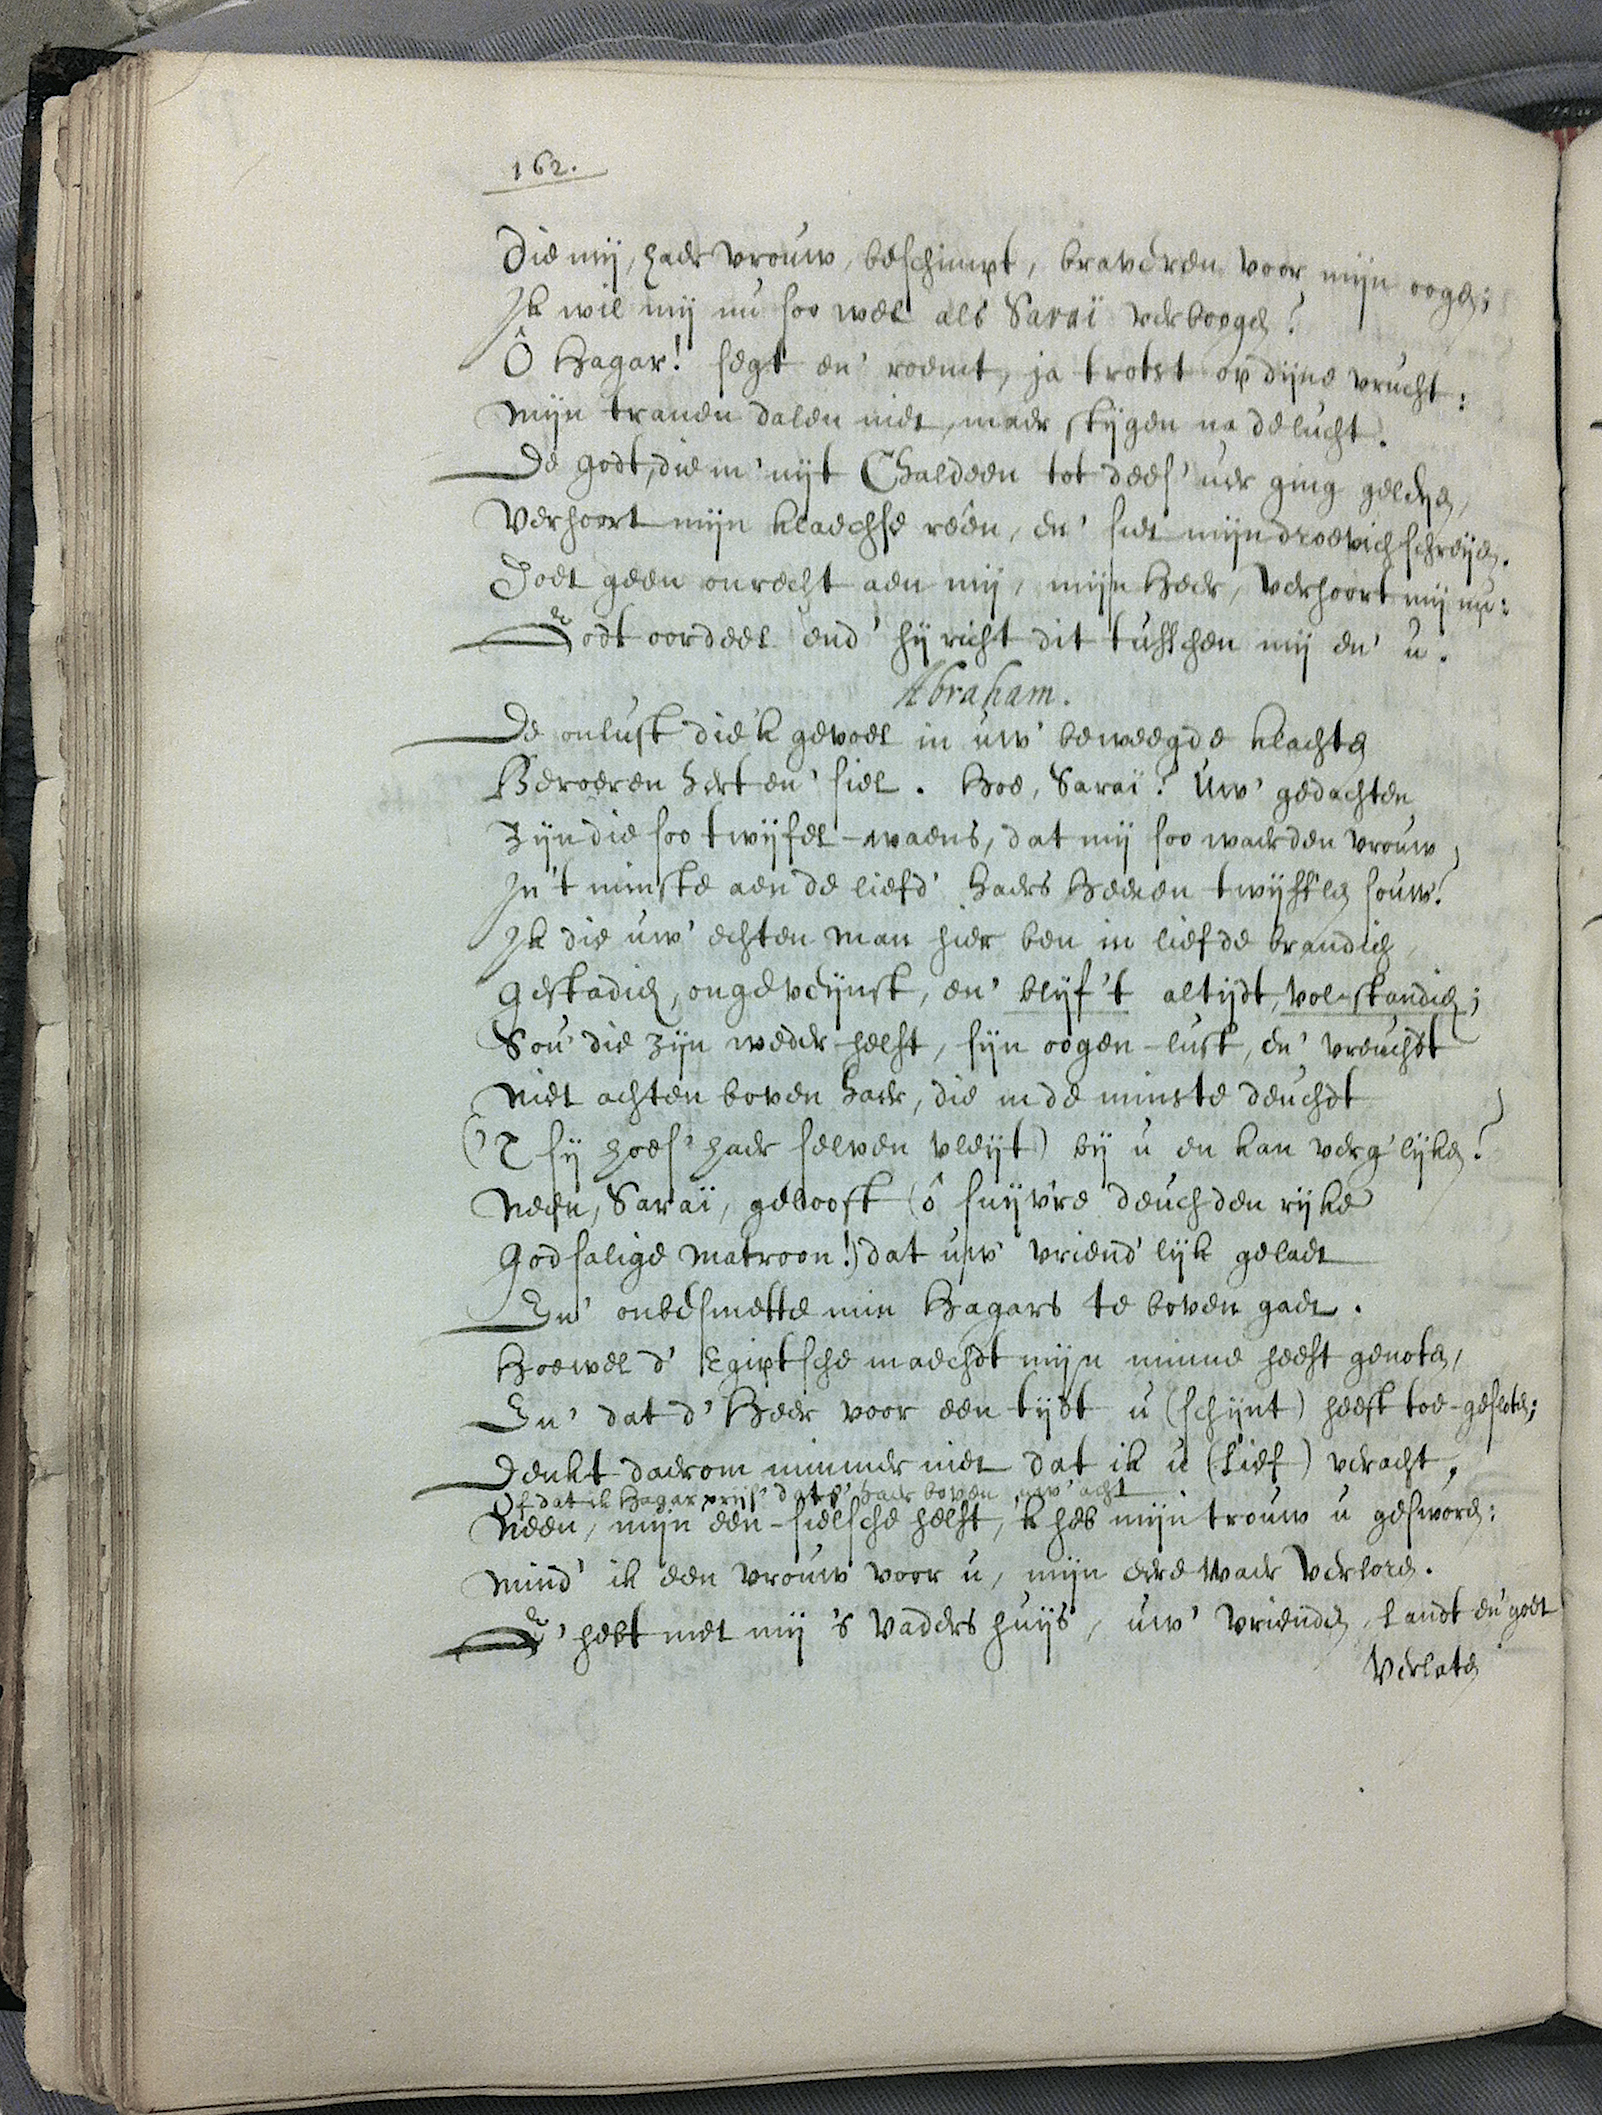 162.
Die mij, haer vrouw, beschimpt, braveren voor mijn oogen;
Ik wil mij nu soo wel als Saraï verboogen?
Ô Hagar! segt en' roemt, ja trotst op dijne vrucht:
Mijn tranen dalen niet, maer stijgen na de lucht.
De Godt, die m' uijt Chaldeen tot dees' uer ging geleijen,
Verhoort mijn klaechse reên, en' siet mijn droevich schreijen.
Doet geen onrecht aen mij, mijn Heer, verhoort mij nu:
Godt oordeel end' hij richt dit tusschen mij en' u.
Abraham.
De onlust die'k gevoel in uw' beweegde klachten
Beroeren hert en' siel. Hoe, Saraï? Uw' gedachten
Zijn die soo twijfel-waens, dat mij soo waerden vrouw,
In't minste aen de liefd' haers Heeren twijff'len souw?
Ik die uw' echten man hier ben in liefde brandich,
Gestadich, ongeveijnst, en' blijf 't altijdt, vol-standich;
Sou' die zijn weder-helft, sijn oogen-lust, en' vreuchdt
Niet achten boven haer, die in de minste deuchdt
('T sij hoes' haer selven vleijt) bij u en kan verg'lijken?
Neen, Saraï, gelooft (ô suijv're deuchden rijke
Godsalige Matroon!) dat uw' vriend'lijk gelaet
En' onbesmette min Hagars te boven gaet.
Hoewel d' Egiptsche maechdt mijn minne heeft genoten,
En' dat d' Heer voor een tijdt u (schijnt) heeft toe-gesloten;
Denkt daerom nimmer niet dat ik u (Lief) veracht,
Of dat ik Hagar prijs' dat s' haer boven uw' acht
Neen, mijn een-sielsche helft, 'k heb mijn trouw u gesworen:
Mind' ik een vrouw voor u, mijn eere waer verloren.
G' hebt met mij 's Vaders huijs, uw' vrienden, Landt en' goet
Verlaten